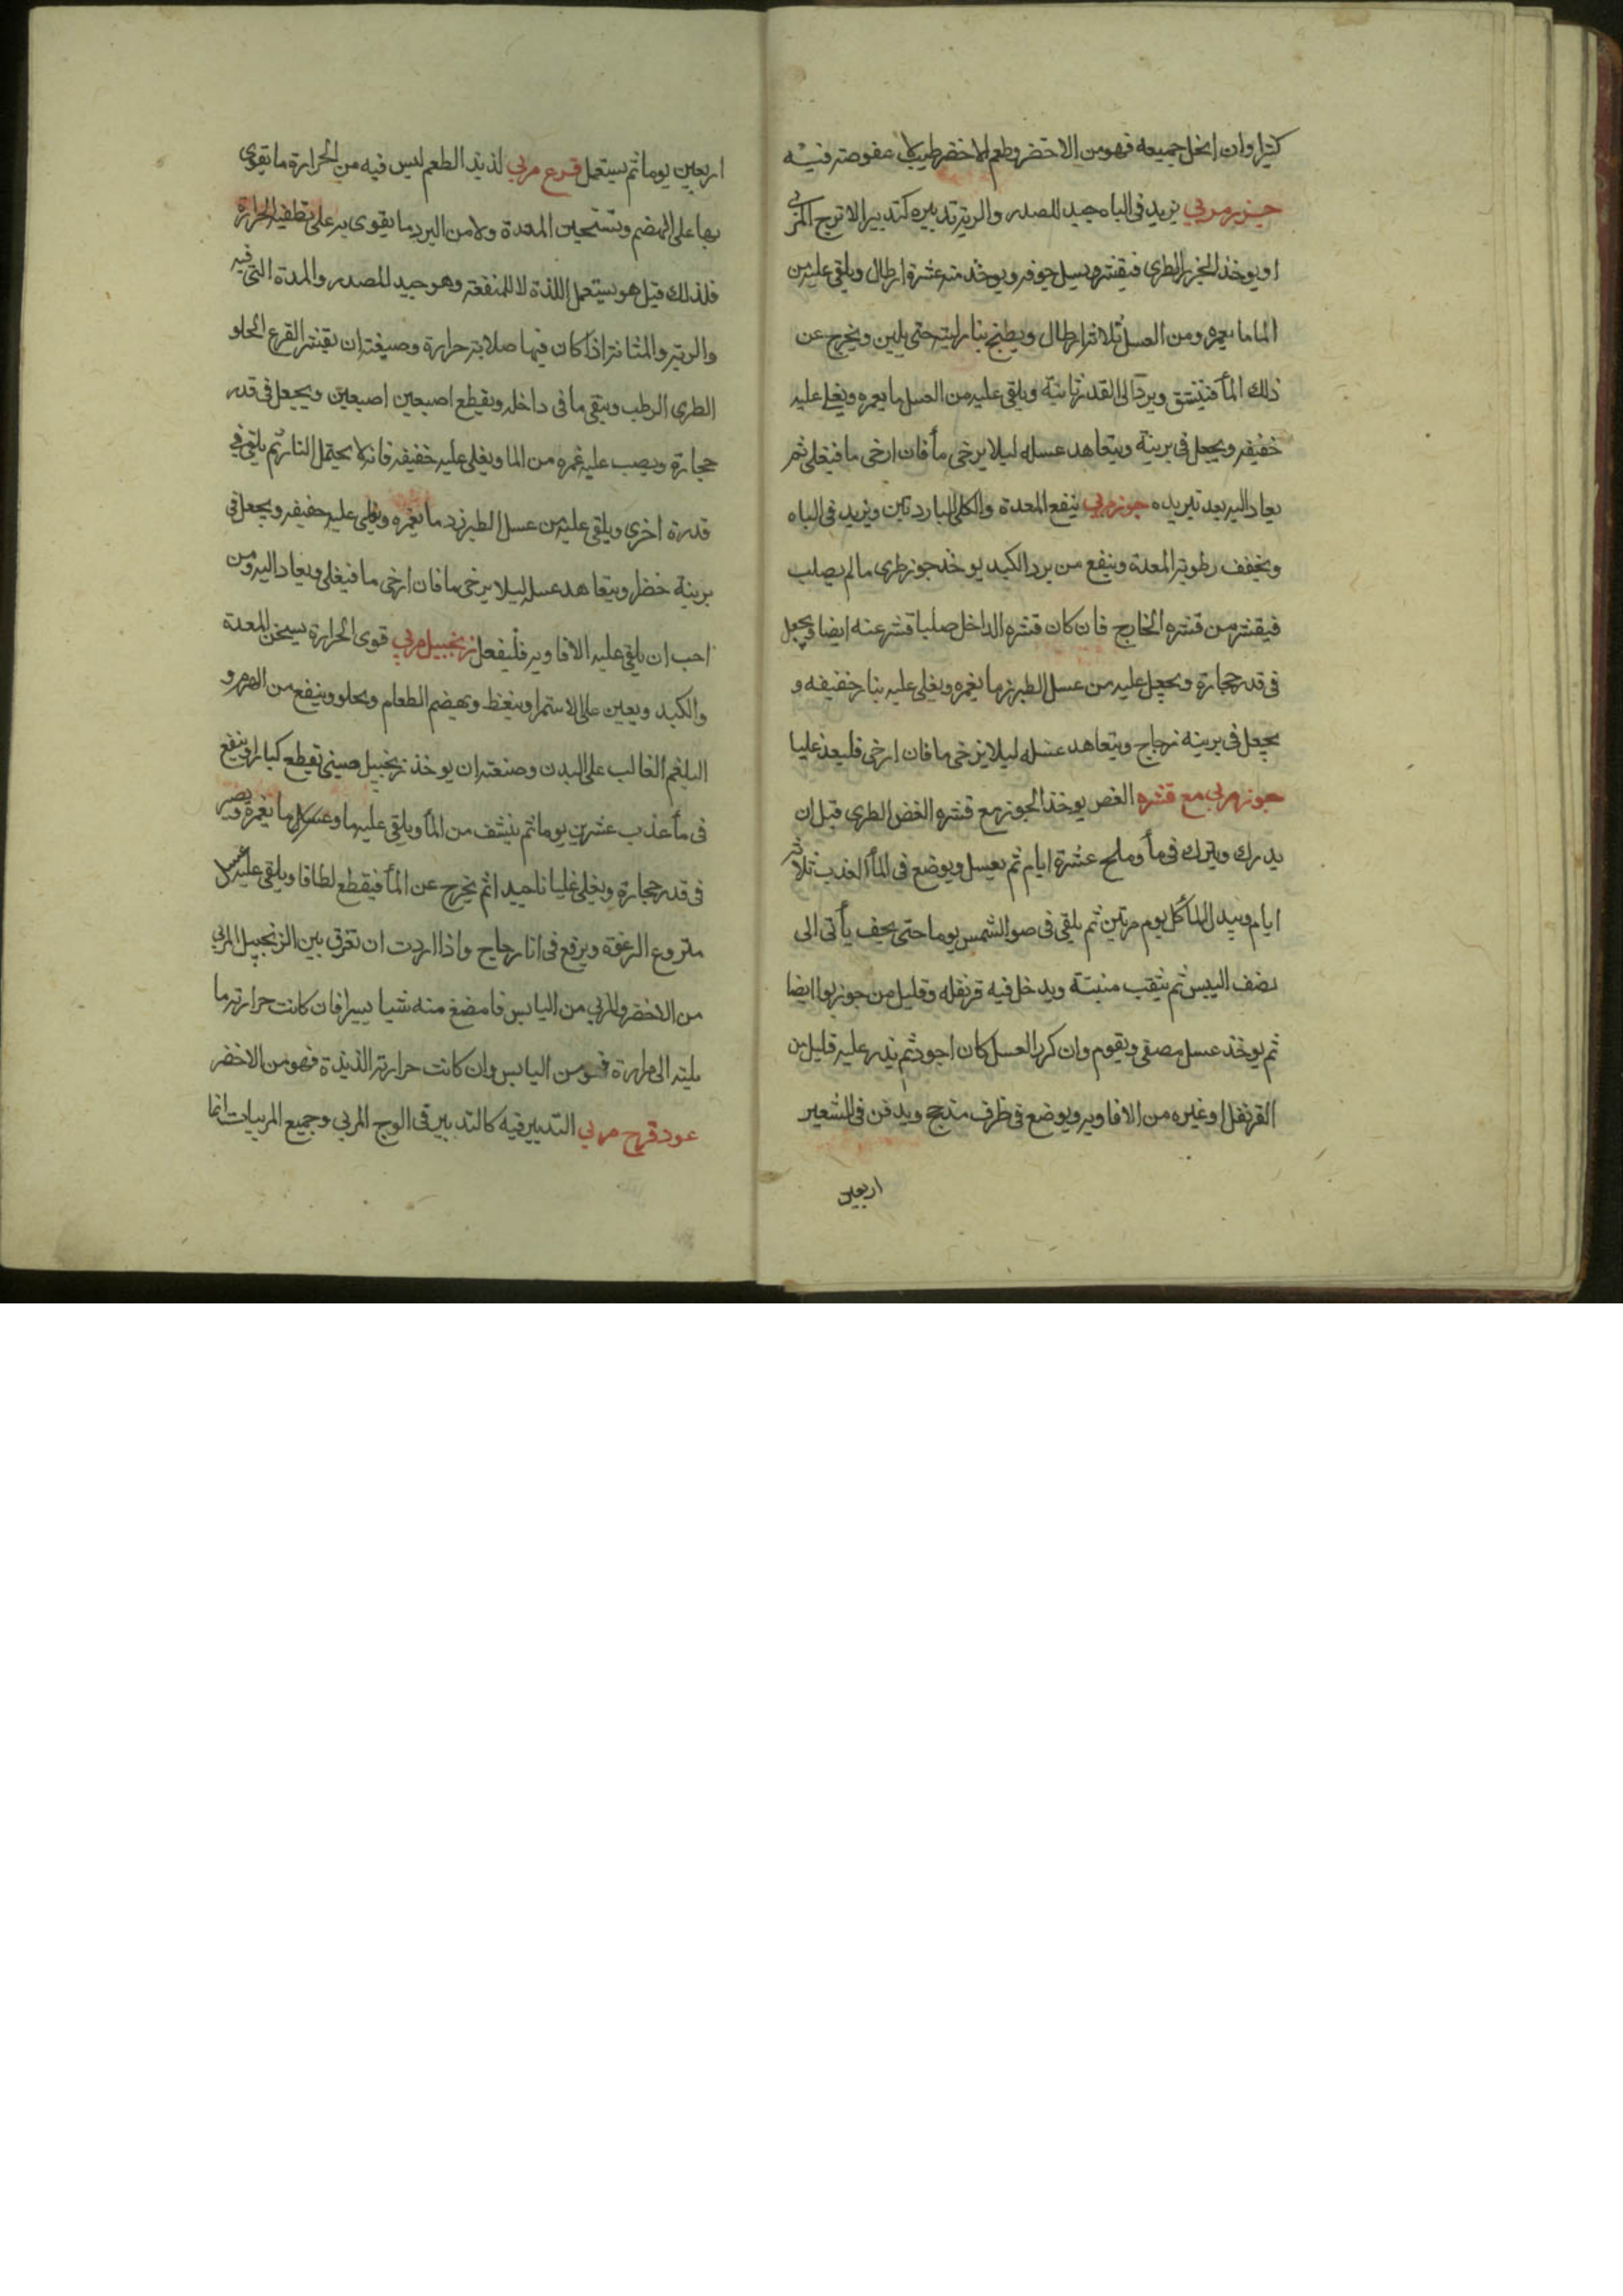 كثيرا وان انحل جميعه فهو من الاخضر وطعم الاخضر طيب لا عفوصة فيه
جزر مربي يزيد في الباه جيد للصدر والرية تدبيره كتدبير الاترج المربي
او يوخذ الجزر الطري فيقشر ويسل جوفه ويوخذ منه عشرة ارطال ويلقي عليه من
الما ما يعمره ومن العسل ثلاثة ارطال ويطبخ بنار لينه حتى يلين ويخرج عن
ذلك المأ فينشق ويرد الى القدر ثانية ويلقي عليه من العسل ما يعمره ويغلي عليه
خفيفه ويجعل في برنية ويتعاهد عسله ليلا يرخي مأ فان ارخى ما فيغلي ثم
يعاد اليه بعد تبريده جوز مربي ينفع المعدة والكلى الباردتين ويزيد في الباه
ويخفف رطوبة المعدة وينفع من برد الكبد يوخذ جوز طري مالم يصلب
فيقشر من قشره الخارج فان كان قشره الداخل صلبا قشر عنه ايضا ويجعل
في قدر حجارة ويجعل عليه من عسل الطبرزد ما يغمره ويغلي عليه بنار خفيفه و
يجعل في برينه زجاج ويتعاهد عسله ليلا يرخي ما فان ارخى فليعد غليا
جوز مربي مع قشره الغض يوخذ الجوز مع قشره الغض الطري قبل ان
يدرك ويترك في مأ وملح عشرة ايام ثم يغسل ويوضع في المأ العذب ثلاثه
ايام ويبدل المأ كل يوم مرتين ثم يلقي في ضو الشمس يوما حتى يجف يأتى الى
نصف اليبس ثم يثقب مثبتة ويدخل فيه قرنفله وقليل من جوز بوا ايضا
ثم يوخذ عسل مصفي ويقوم وان كرر العسل كان اجود ثم يذر عليه قليل من
القرنفل او غيره من الافاويه ويوضع في ظرف مدجج ويدفن في الشعير
اربعين
اربعين يوما ثم يستعمل قرع مربي لذيذ الطعم ليس فيه من الحرارة ما يقوي
بها على الهضم وتسخين المعدة ولا من البرد ما يقوي به على تطفية الحرارة
فلذلك قيل هو يستعمل اللذة لا للمنفعة وهو جيد للصدر والمدة التي فيه
والرية والمثانة اذا كان فيها صلابة حرارة وصنعته ان يقشر القرع الحلو
الطري الرطب وينقي ما في داخله ويقطع اصبعين اصبعين ويجعل في قدر
حجارة ويصب عليه غمره من الما ويغلي عليه خفيفه فانه لا يحتمل النار ثم يلقي في
قدرة اخرى ويلقي عليه من عسل الطبرزد ما يغمره ويغلي عليه خفيفه ويجعل في
برينة خضرا ويتعاهد عسله ليلا يرخي ما فان ارخى ما فيغلي ويعاد اليه ومن
احب ان يلقي عليه الافاويه فليفعل زنجبيل مربي قوي الحرارة يسخن المعدة
والكبد ويعين على الاستمرا وينغظ ويهضم الطعام ويحلو وينفع من الهرم و
البلغم الغالب على البدن وصنعته ان يوخذ زنجبيل صيني تقطع كبارا وينقع
في مأ عذب عشرين يوما ثم ينشف من المأ ويلقي عليه ما وعسل ما يغمره ويصير
في قدر حجارة ويغلي غليانا جيدا ثم يخرج عن المأ فيقطع لطافا ويلقي عليه عسل
منزوع الرغوة ويرفع في انا زجاج واذا اردت ان تفرق بين الزنجبيل المربي
من الاخضر والمربي من اليابس فامضغ منه شيا يسيرا فان كانت حرارته ما
يلته الى مرارة فهو من اليابس وان كانت حرارته الذيذة فهو من الاخضر
عود قرح مربي التدبير فيه كالتدبير في الوج المربي وجميع المربيات انما